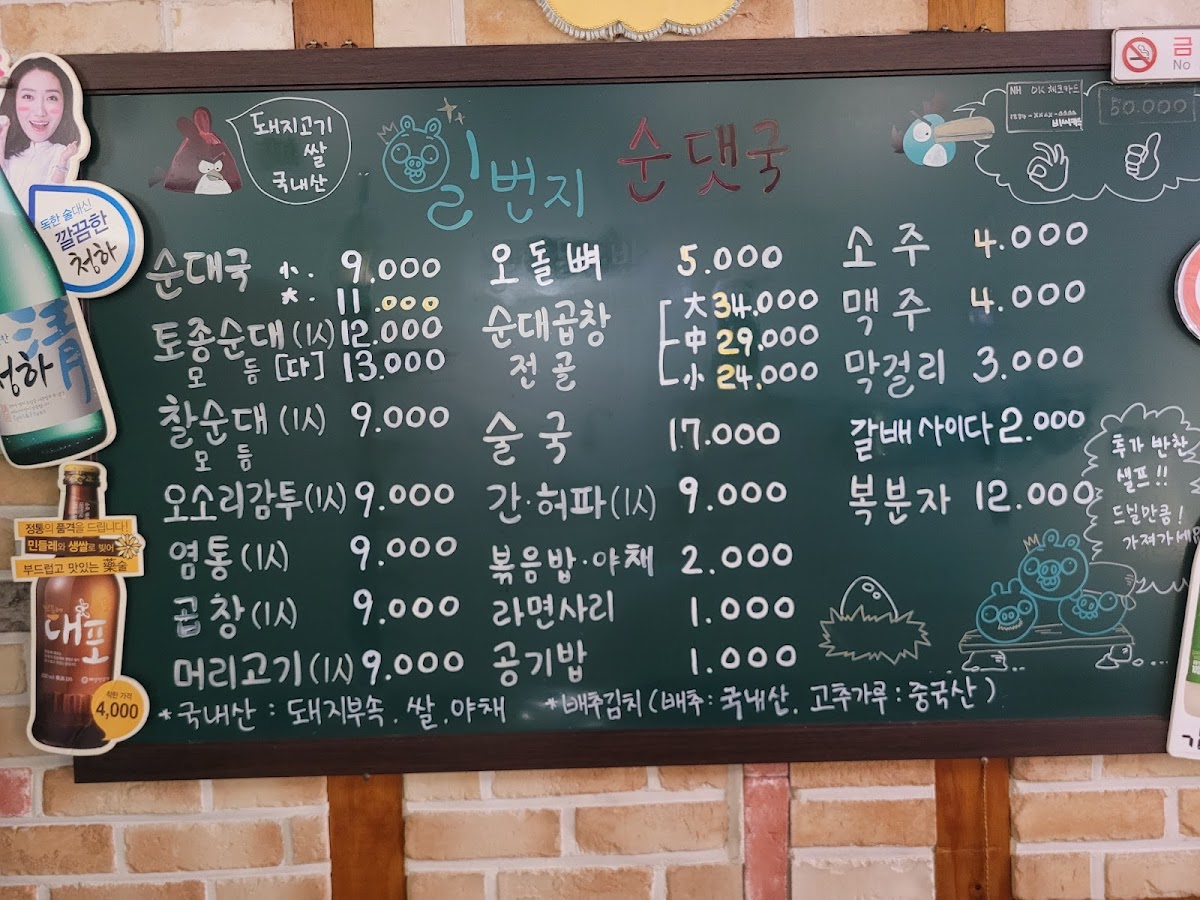 돼지고기
쌀
국내산
일번지 순댓국
NH OK체크카드
50.000
금
No
순대국 小. 9.000
大. 11.000
토종순대(1人) 12.000
모듬[따] 13.000
찰순대(1人) 9.000
모듬
오소리감투(1人) 9.000
염통(1人) 9.000
곱창(1人) 9.000
머리고기(1人) 9.000
오돌뼈 5.000
순대곱창 大 34.000
전골 中 29.000
小 24.000
술국 17.000
간·허파(1人) 9.000
볶음밥·야채 2.000
라면사리 1.000
공기밥 1.000
소주 4.000
맥주 4.000
막걸리 3.000
갈배사이다 2.000
복분자 12.000
추가 반찬
셀프!!
드실만큼!
가져가세요
*국내산 : 돼지부속. 쌀.야채 *배추김치(배추: 국내산. 고추가루: 중국산)
독한 술대신
깔끔한
청하
清河
청하
정통의 품격을 드립니다!
민들레와 생쌀로 빚어
부드럽고 맛있는 藥술
대포
착한 가격
4,000